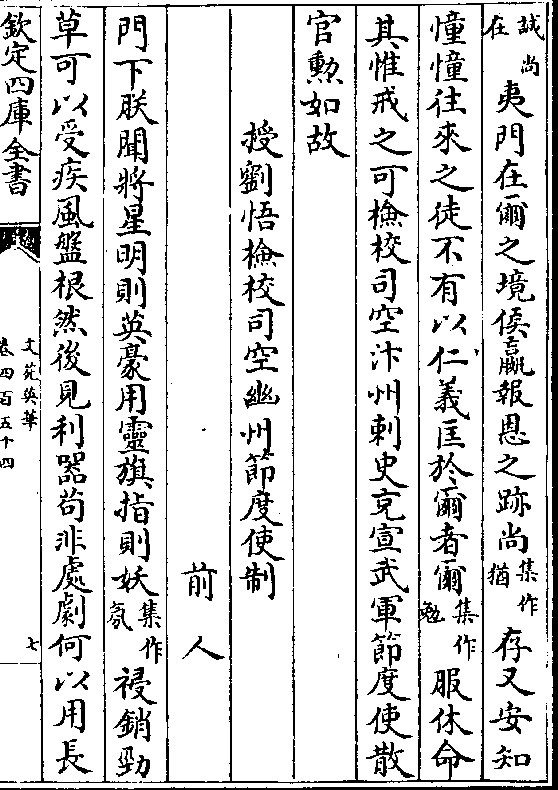 誠尚在夷門在爾之境侯嬴報恩之跡尚集作猶存又安知
憧憧往來之徒不有以仁義匡於爾者爾集作勉服休命
其惟戒之可檢校司空汴州刺史克宣武軍節度使散
官勲如故
授劉悟檢校司空幽州節度使制
前人
門下朕聞將星明則英豪用靈旗指則妖集作氛祲銷勁
草可以受疾風盤根然後見利器苟非處劇何以用長
欽定四庫全書
文苑英華
卷四百五十四
七